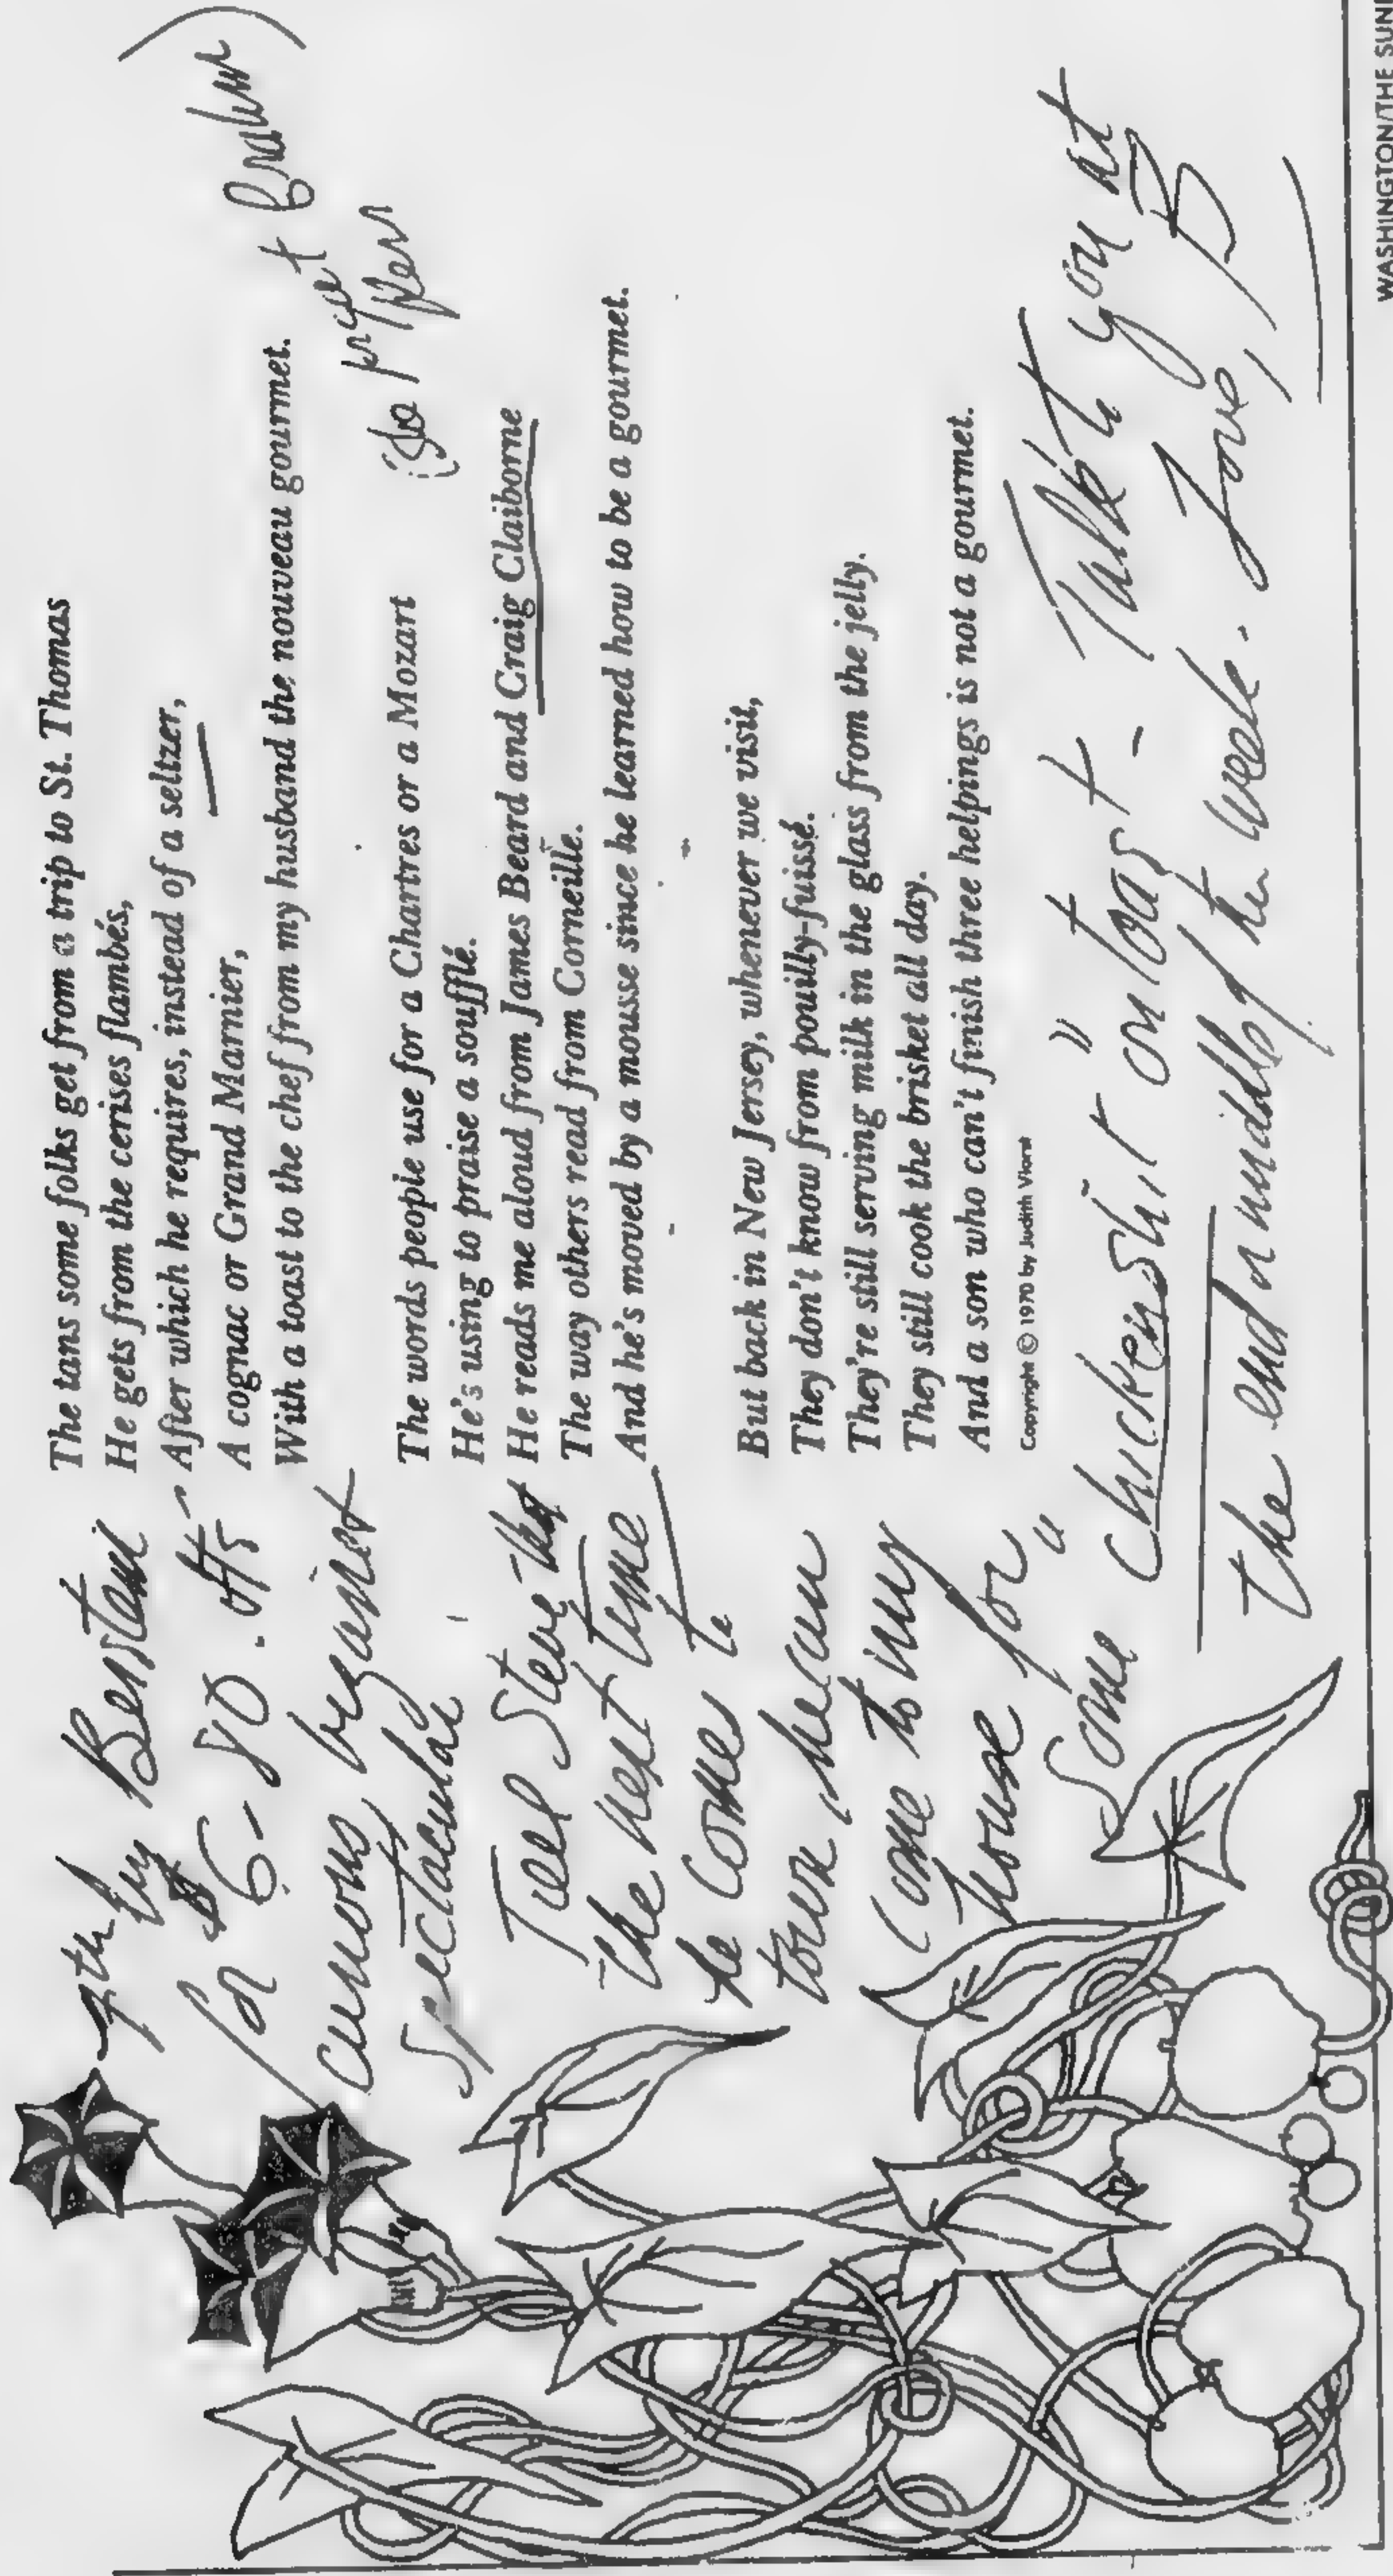 The tans some folks get from a trip to St. Thomas
He gets from the cerises flambés,
After which he requires, instead of a seltzer,
A cognac or Grand Marnier,
With a toast to the chef from my husband the nouveau gourmet.
The words people use for a Chartres or a Mozart
He's using to praise a soufflé.
He reads me aloud from James Beard and Craig Claiborne
The way others read from Corneille.
And he's moved by a mousse since he learned how to be a gourmet.
But back in New Jersey, whenever we visit,
They don't know from pouilly-fuissé.
They're still serving milk in the glass from the jelly.
They still cook the brisket all day.
And a son who can't finish three helpings is not a gourmet.
Copyright © 1970 by Judith Viorst
7th by
for $ 6-80.
curious
spectacular
Tell Steve that
the next time
he comes to
town he can
come to my
house for "
Some chickenshit" on toast - Talk to you at
the end or middle of the week. Love, B
WASHINGTON/THE SUN